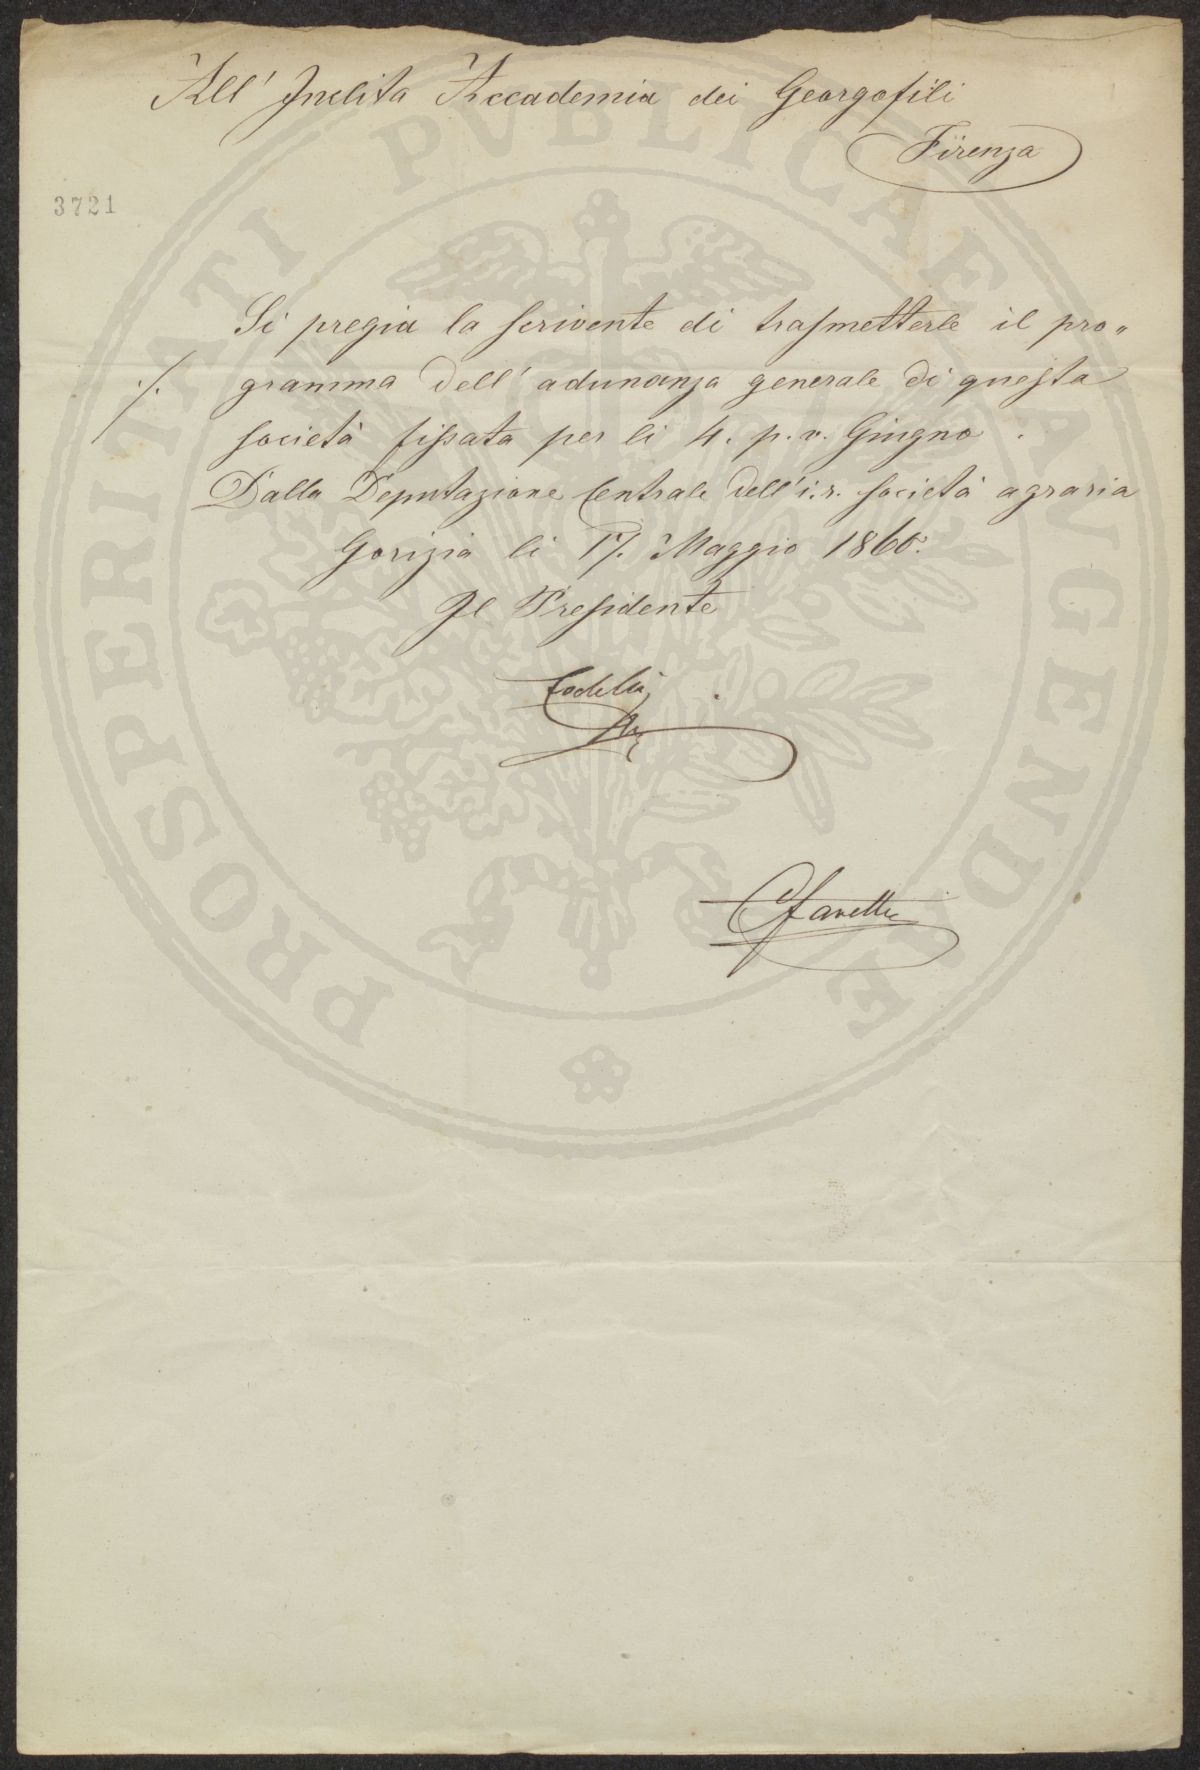 All' Inclita Accademia dei Georgofili
Firenza
3721
Si pregia la scrivente di trasmetterle il pro„
./. gramma dell' adunanza generale di questa
società fissata per li 4. p. v. Giugno.
Dalla Deputazione Centrale dell' i. r. società agraria
Gorizia li 17. Maggio 1860.
Il Presidente
Codelli
Favetti
PROSPERITATI PVBLICAE AVGENDAE